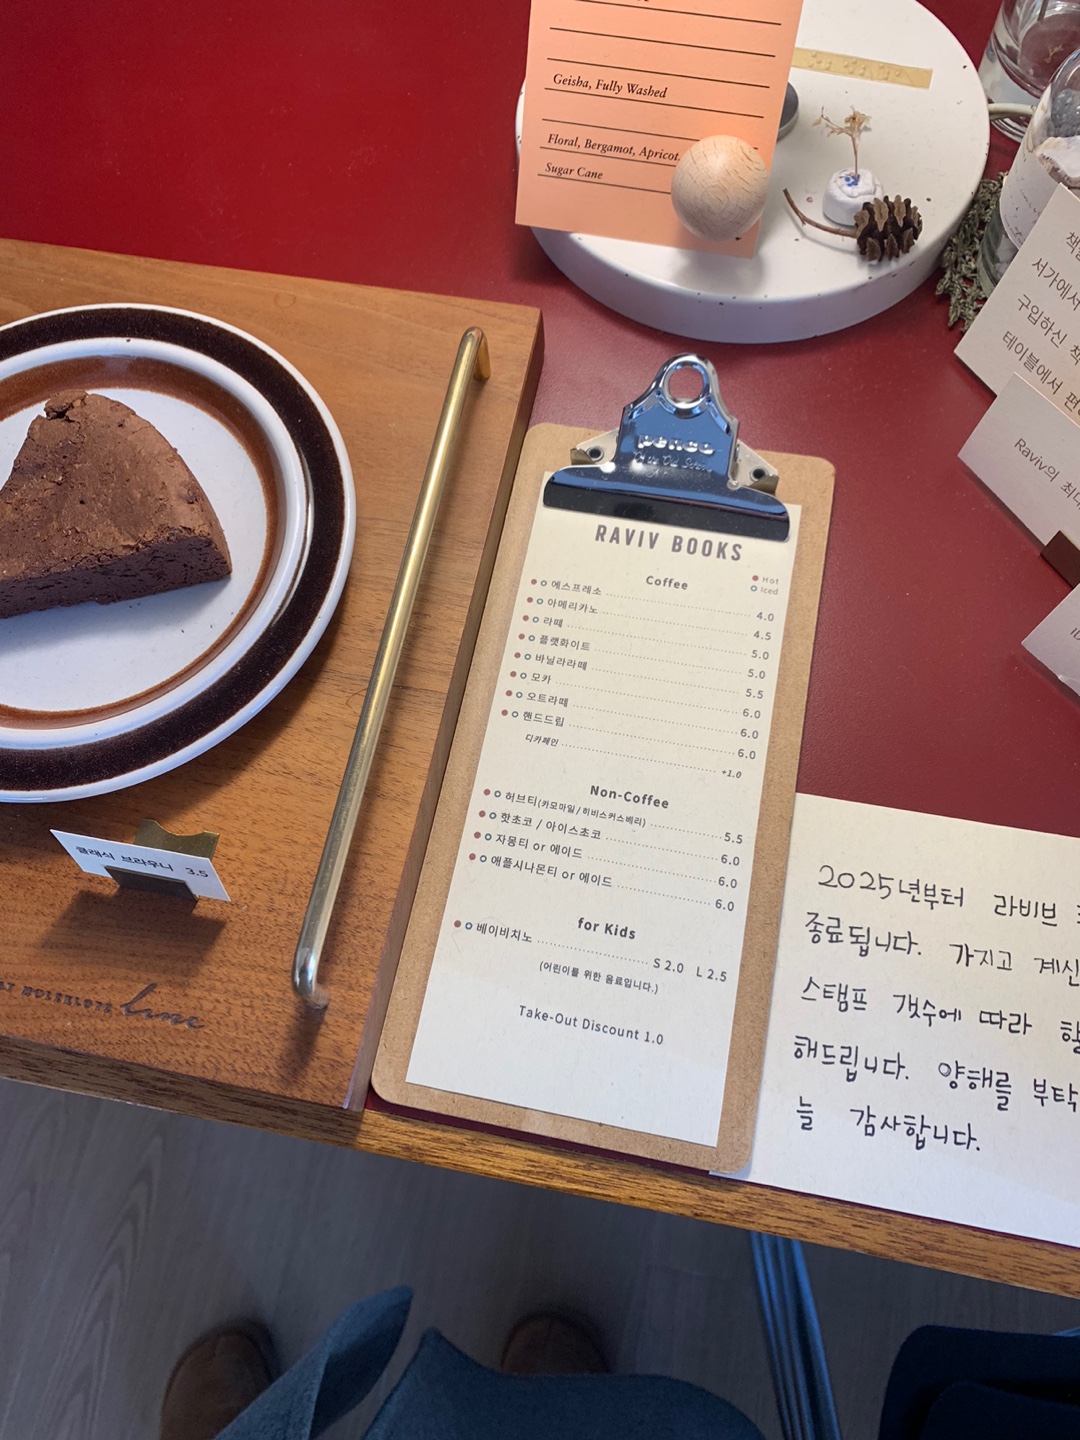 Geisha, Fully Washed
Floral, Bergamot, Apricot,
Sugar Cane
서가에서
구입하신 책
테이블에서
Raviv의
penco
RAVIV BOOKS
Coffee
Hot
Iced
에스프레소 4.0
아메리카노 4.5
라떼 5.0
플랫화이트 5.0
바닐라라떼 5.5
모카 6.0
오트라떼 6.0
핸드드립 6.0
디카페인 +1.0
Non-Coffee
허브티(카모마일 / 히비스커스베리) 5.5
핫초코 / 아이스초코 6.0
자몽티 or 에이드 6.0
애플시나몬티 or 에이드 6.0
for Kids
베이비치노 S 2.0 L 2.5
(어린이를 위한 음료입니다.)
Take-Out Discount 1.0
클래식 브라우니 3.5
2025년부터 라비브
종료됩니다. 가지고 계신
스탬프 갯수에 따라
해드립니다. 양해를 부탁
늘 감사합니다.